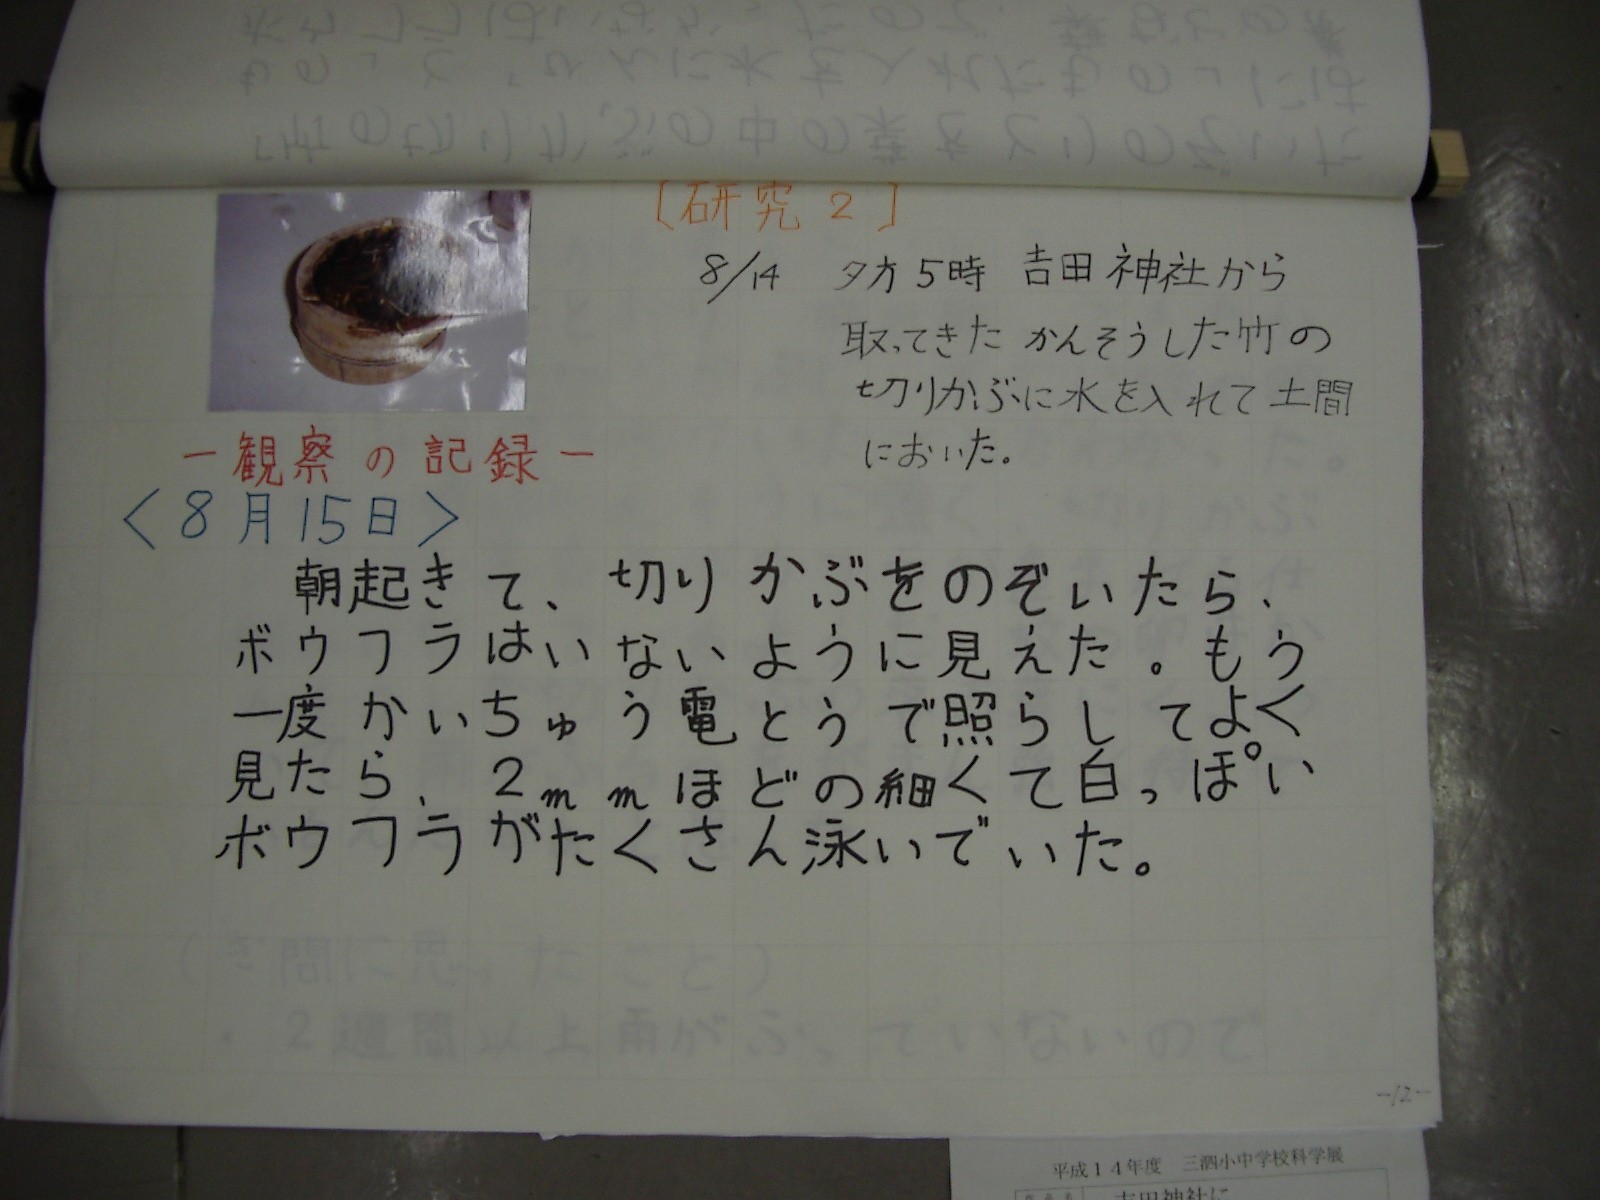 [研究2]
8/14 夕方5時 吉田神社から
取ってきた かんそうした竹の
切りかぶに水を入れて土間
においた。
－観察の記録－
〈8月15日〉
朝起きて、切りかぶをのぞいたら、
ボウフラはいないように見えた。もう
一度かいちゅう電とうで照らしてよく
見たら、2mmほどの細くて白っぽい
ボウフラがたくさん泳いでいた。
(ぎ問に思ったこと)
・2週間以上雨がふっていないので
-12-
平成14年度 三泗小中学校科学展
吉田神社に